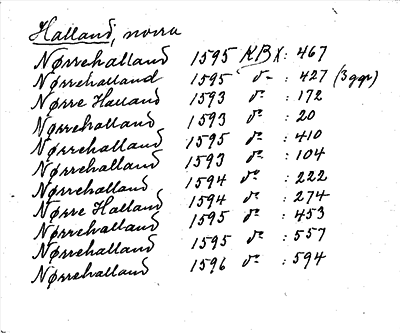 Halland, norra
Nørrehalland 1595 KB X: 467
Nørrehalland 1595 d- : 427 (3 ggr)
Nørre Halland 1593 do : 172
Nørrehalland 1593 do : 20
Nørrehalland 1595 do : 410
Nørrehalland 1593 do : 104
Nørrehalland 1594 do : 222
Nørre Halland 1594 do : 274
Nørrehalland 1595 do : 453
Nørrehalland 1595 do : 557
Nørrehalland 1596 do : 594